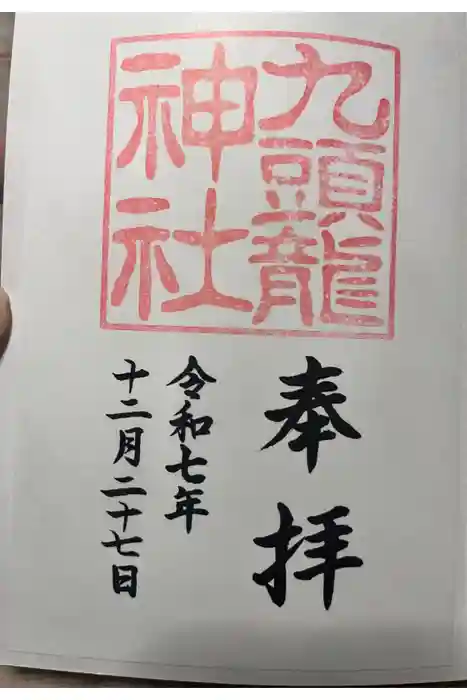 九頭龍
神社
奉拝
令和七年
十二月二十七日